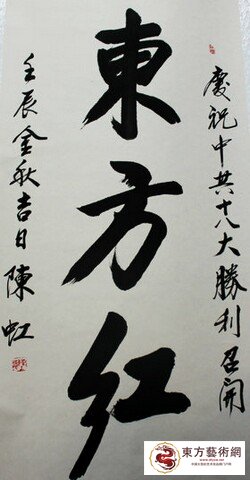 慶祝中共十八大勝利召開
東方红
壬辰金秋吉日陳虹
東方藝術網